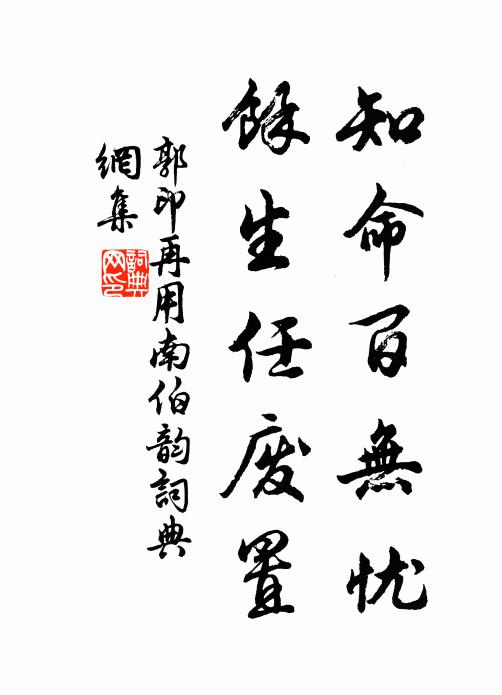 知命百無忧
餘生任废置
郭印再用南伯韵詞典
網集
詞典网印